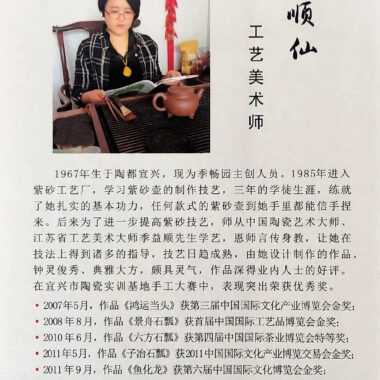 顺仙
工艺美术师
1967年生于陶都宜兴，现为季畅园主创人员。1985年进入
紫砂工艺厂，学习紫砂壶的制作技艺，三年的学徒生涯，练就
了她扎实的基本功力，任何款式的紫砂壶到她手里都能信手捏
来。后来为了进一步提高紫砂技艺，师从中国陶瓷艺术大师、
江苏省工艺美术大师季益顺先生学艺，恩师言传身教，让她在
技法上得到诸多的指导，技艺日趋成熟，由她设计制作的作品，
钟灵俊秀、典雅大方，颇具灵气，作品深得业内人士的好评。
在宜兴市陶瓷实训基地手工大赛中，表现突出荣获优秀奖。
• 2007年5月，作品《鸿运当头》获第三届中国国际文化产业博览会金奖；
• 2008年8月，作品《景舟石瓢》获首届中国国际工艺品博览会金奖；
• 2010年6月，作品《六方石瓢》获第四届中国国际茶业博览会特等奖；
• 2011年5月，作品《子冶石瓢》获2011中国国际文化产业博览交易会金奖；
• 2011年9月，作品《鱼化龙》获第六届中国国际文化博览会金奖。